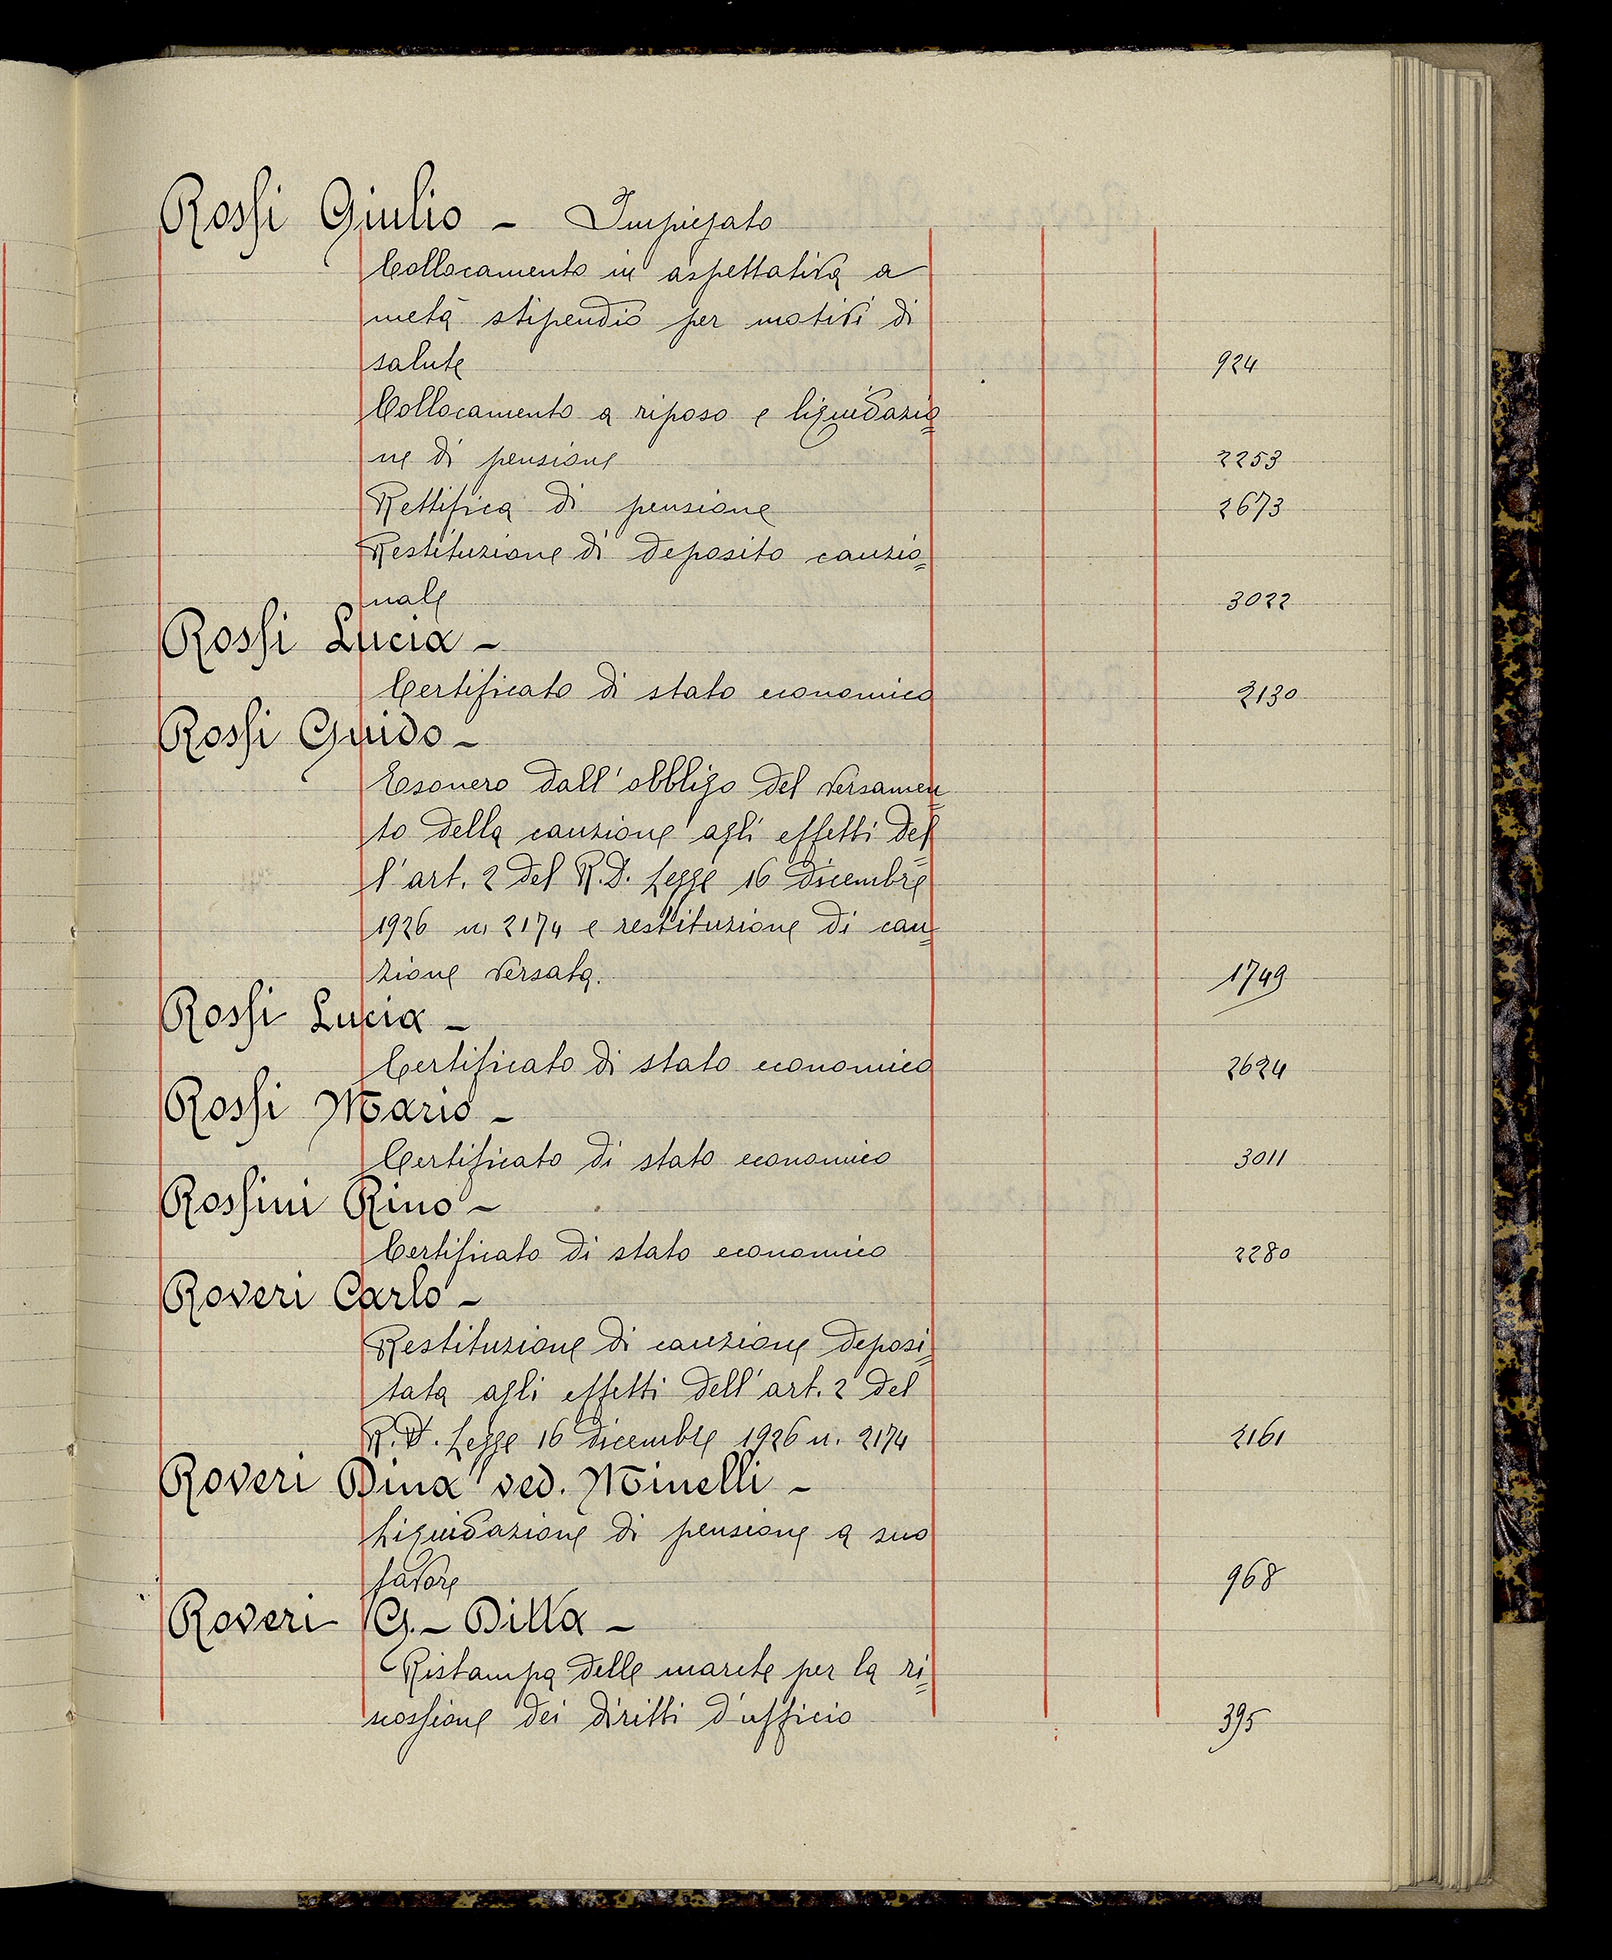 Rossi Giulio - Impiegato
Collocamento in aspettativa a
metà stipendio per motivi di
salute 924
Collocamento a riposo e liquidazio=
ne di pensione 2253
Rettifica di pensione 2673
Restituzione di deposito cauzio=
nale 3022
Rossi Lucia -
Certificato di stato economico 2130
Rossi Guido -
Esonero dall'obbligo del versamen=
to della cauzione agli effetti del=
l'art. 2 del R.D. Legge 16 dicembre
1926 n. 2174 e restituzione di cau=
zione versata. 1749
Rossi Lucia -
Certificato di stato economico 2624
Rossi Mario -
Certificato di stato economico 3011
Rossini Rino -
Certificato di stato economico 2280
Roveri Carlo -
Restituzione di cauzione deposi=
tata agli effetti dell'art. 2 del
R.D. Legge 16 dicembre 1926 n. 2174 2161
Roveri Dina ved. Minelli -
Liquidazione di pensione a suo
favore 968
Roveri G. - Ditta -
Ristampa delle marche per la ri=
scossione dei diritti d'ufficio 395